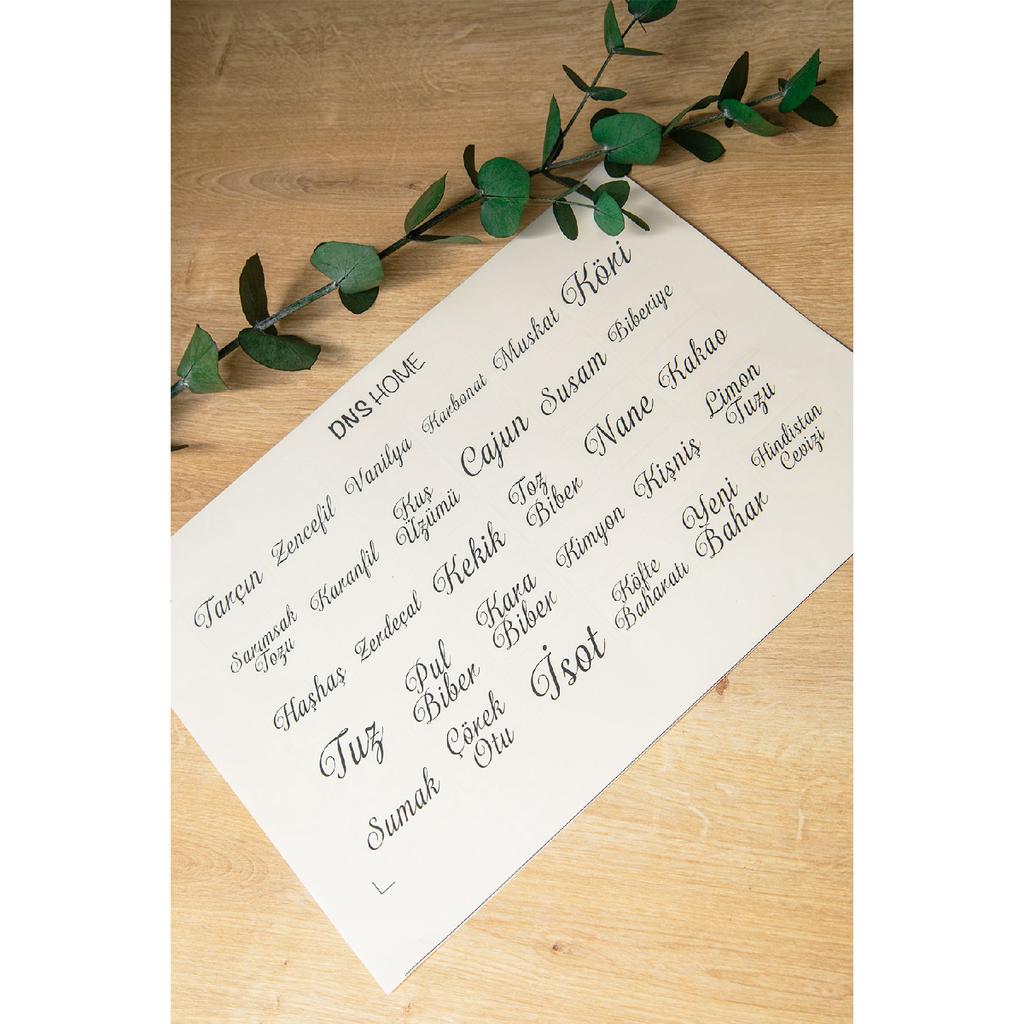 DNS HOME
Tarçın Zencefil Vanilya Karbonat Muskat Köri
Sarımsak Tozu Karanfil Kuş Üzümü Cajun Susam Biberiye
Haşhaş Zerdeçal Kekik Toz Biber Nane Kakao
Tuz Pul Biber Kara Biber Kimyon Kişniş Limon Tuzu
Sumak Çörek Otu İsot Köfte Baharatı Yeni Bahar Hindistan Cevizi